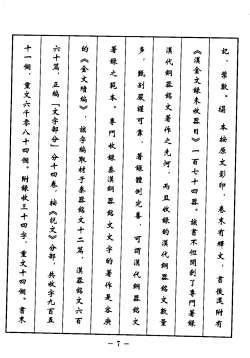 記、葉數。摄本按原文影印，卷末有釋文，書後還附有
《漢金文錄未收器目》一百七十四器。該書不但開創了專門著錄
漢代銅器銘文著作之先河，而且收錄的漢代銅器銘文數量
多，甄別嚴謹可靠，著錄體例完善，可謂漢代銅器銘文
著錄之範本。專門收錄秦漢銅器銘文文字的著作是容庚
的《金文續編》，該字編取材于秦器銘文十二篇，漢器銘文六百
六十篇，正編「文字部分」分十四卷，按《說文》分部，共收字九百五
十一個，重文六千零八十四個。附錄收三十四字，重文十四個。書末
－7－